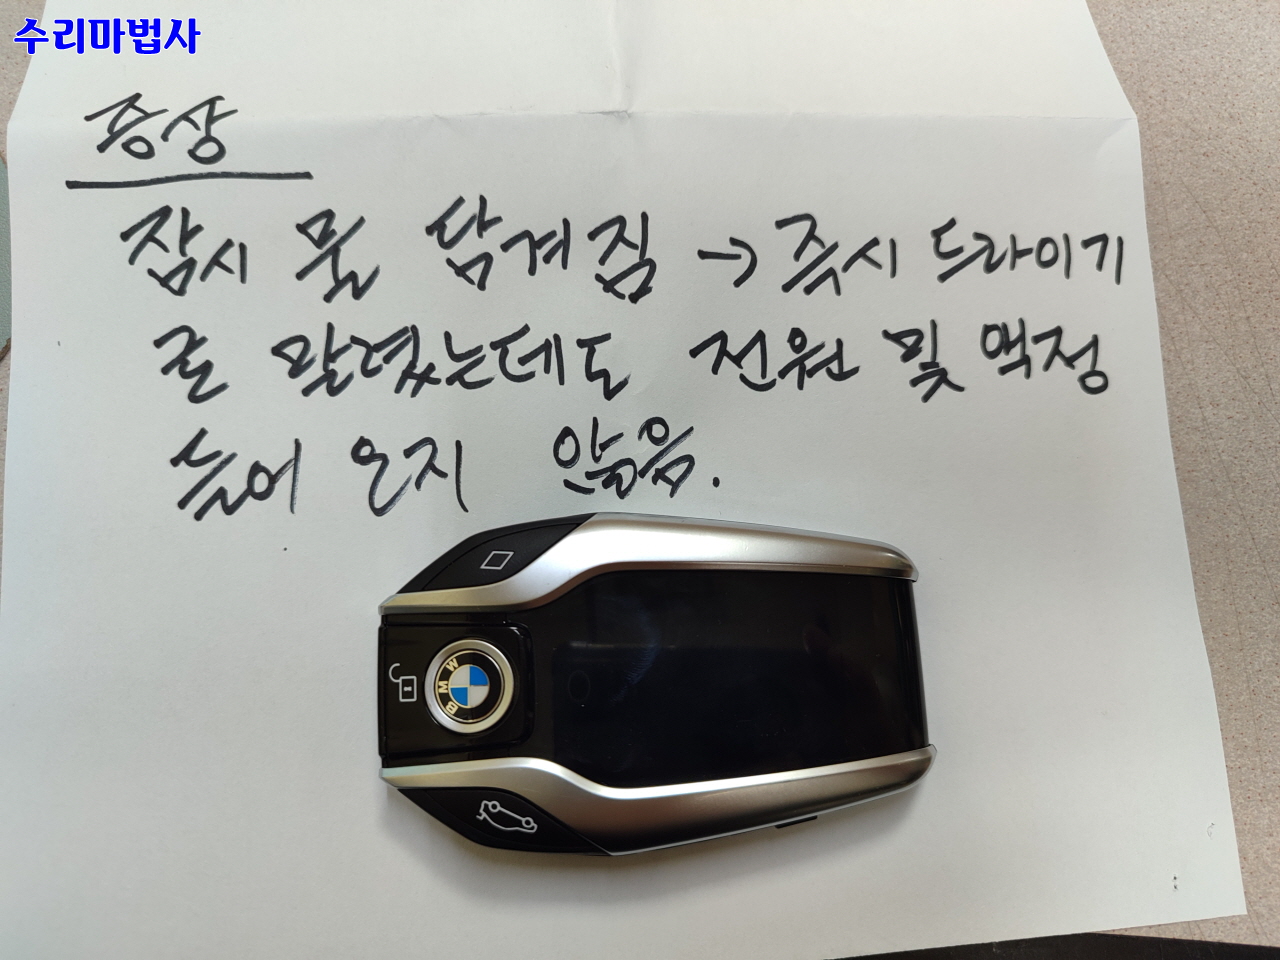 수리마법사
증상
잠시 물 담겨짐 → 즉시 드라이기
로 말렸는데도 전원 및 액정
들어 오지 않음.
BMW